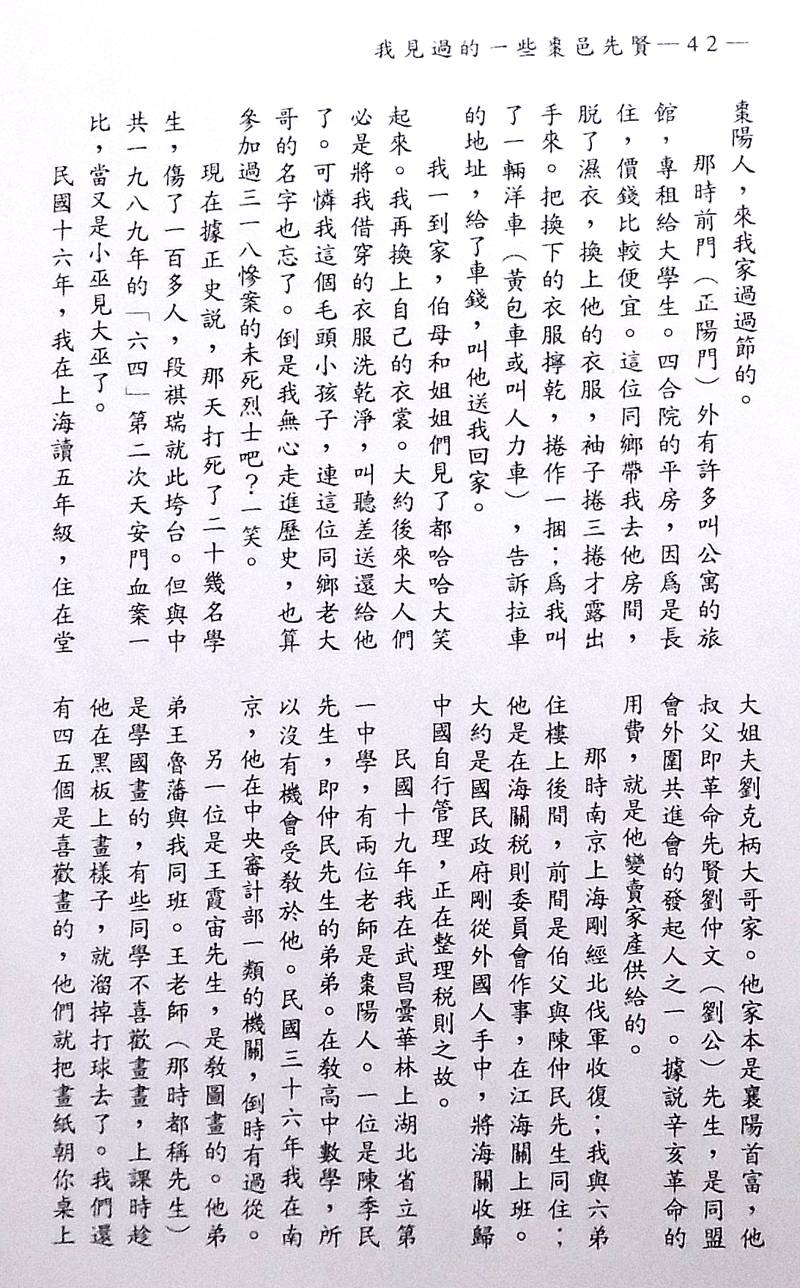 我見過的一些棗邑先賢—42—
棗陽人，來我家過過節的。
那時前門（正陽門）外有許多叫公寓的旅
館，專租給大學生。四合院的平房，因爲是長
住，價錢比較便宜。這位同鄉帶我去他房間，
脱了濕衣，換上他的衣服，袖子捲三捲才露出
手來。把換下的衣服擰乾，捲作一捆；爲我叫
了一輛洋車（黃包車或叫人力車），告訴拉車
的地址，給了車錢，叫他送我回家。
我一到家，伯母和姐姐們見了都哈哈大笑
起來。我再換上自己的衣裳。大約後來大人們
必是將我借穿的衣服洗乾淨，叫聽差送還給他
了。可憐我這個毛頭小孩子，連這位同鄉老大
哥的名字也忘了。倒是我無心走進歷史，也算
參加過三一八慘案的未死烈士吧？一笑。
現在據正史説，那天打死了二十幾名學
生，傷了一百多人，段祺瑞就此垮台。但與中
共一九八九年的「六四」第二次天安門血案一
比，當又是小巫見大巫了。
民國十六年，我在上海讀五年級，住在堂
大姐夫劉克柄大哥家。他家本是襄陽首富，他
叔父即革命先賢劉仲文（劉公）先生，是同盟
會外圍共進會的發起人之一。據説辛亥革命的
用費，就是他變賣家產供給的。
那時南京上海剛經北伐軍收復；我與六弟
住樓上後間，前間是伯父與陳仲民先生同住；
他是在海關税則委員會作事，在江海關上班。
大約是國民政府剛從外國人手中，將海關收歸
中國自行管理，正在整理税則之故。
民國十九年我在武昌曇華林上湖北省立第
一中學，有兩位老師是棗陽人。一位是陳季民
先生，即仲民先生的弟弟。在教高中數學，所
以沒有機會受教於他。民國三十六年我在南
京，他在中央審計部一類的機關，倒時有過從。
另一位是王霞宙先生，是教圖畫的。他弟
弟王魯藩與我同班。王老師（那時都稱先生）
是學國畫的，有些同學不喜歡畫畫，上課時趁
他在黑板上畫樣子，就溜掉打球去了。我們還
有四五個是喜歡畫的，他們就把畫紙朝你桌上